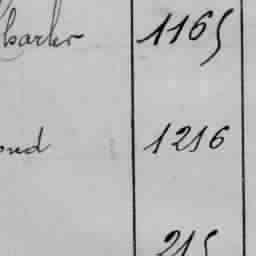 harles 1165
ond 1216
215